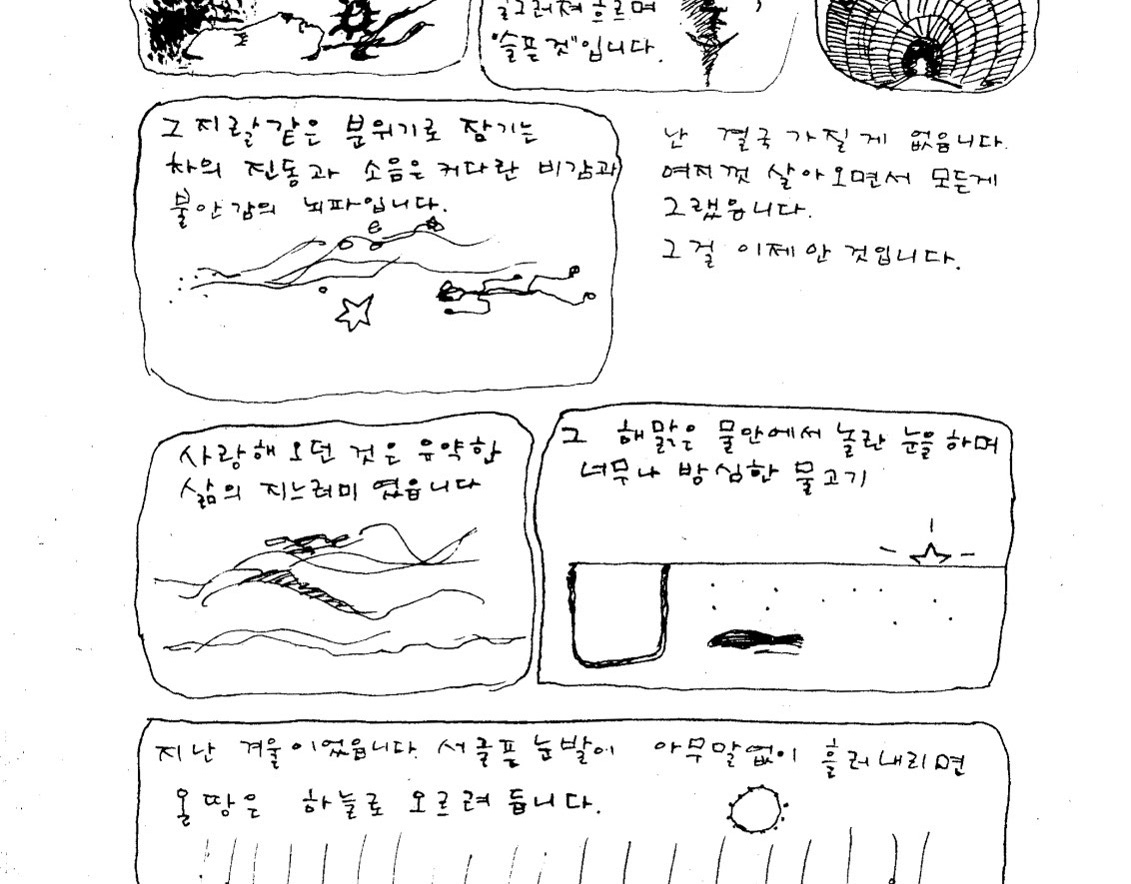 일그러져 흐르며
"슬픈것"입니다.
그 지랄같은 분위기로 잠기는
차의 진동과 소음은 커다란 비감과
불안감의 뇌파입니다.
난 결국 가질게 없읍니다.
여지껏 살아오면서 모든게
그랬읍니다.
그걸 이제 안 것입니다.
사랑해 오던 것은 유약한
삶의 지느러미 였읍니다
그 해맑은 물안에서 놀란 눈을 하며
너무나 방심한 물고기
지난 겨울이었읍니다. 서글픈 눈발이 아무말없이 흘러내리면
온 땅은 하늘로 오르려 듭니다.